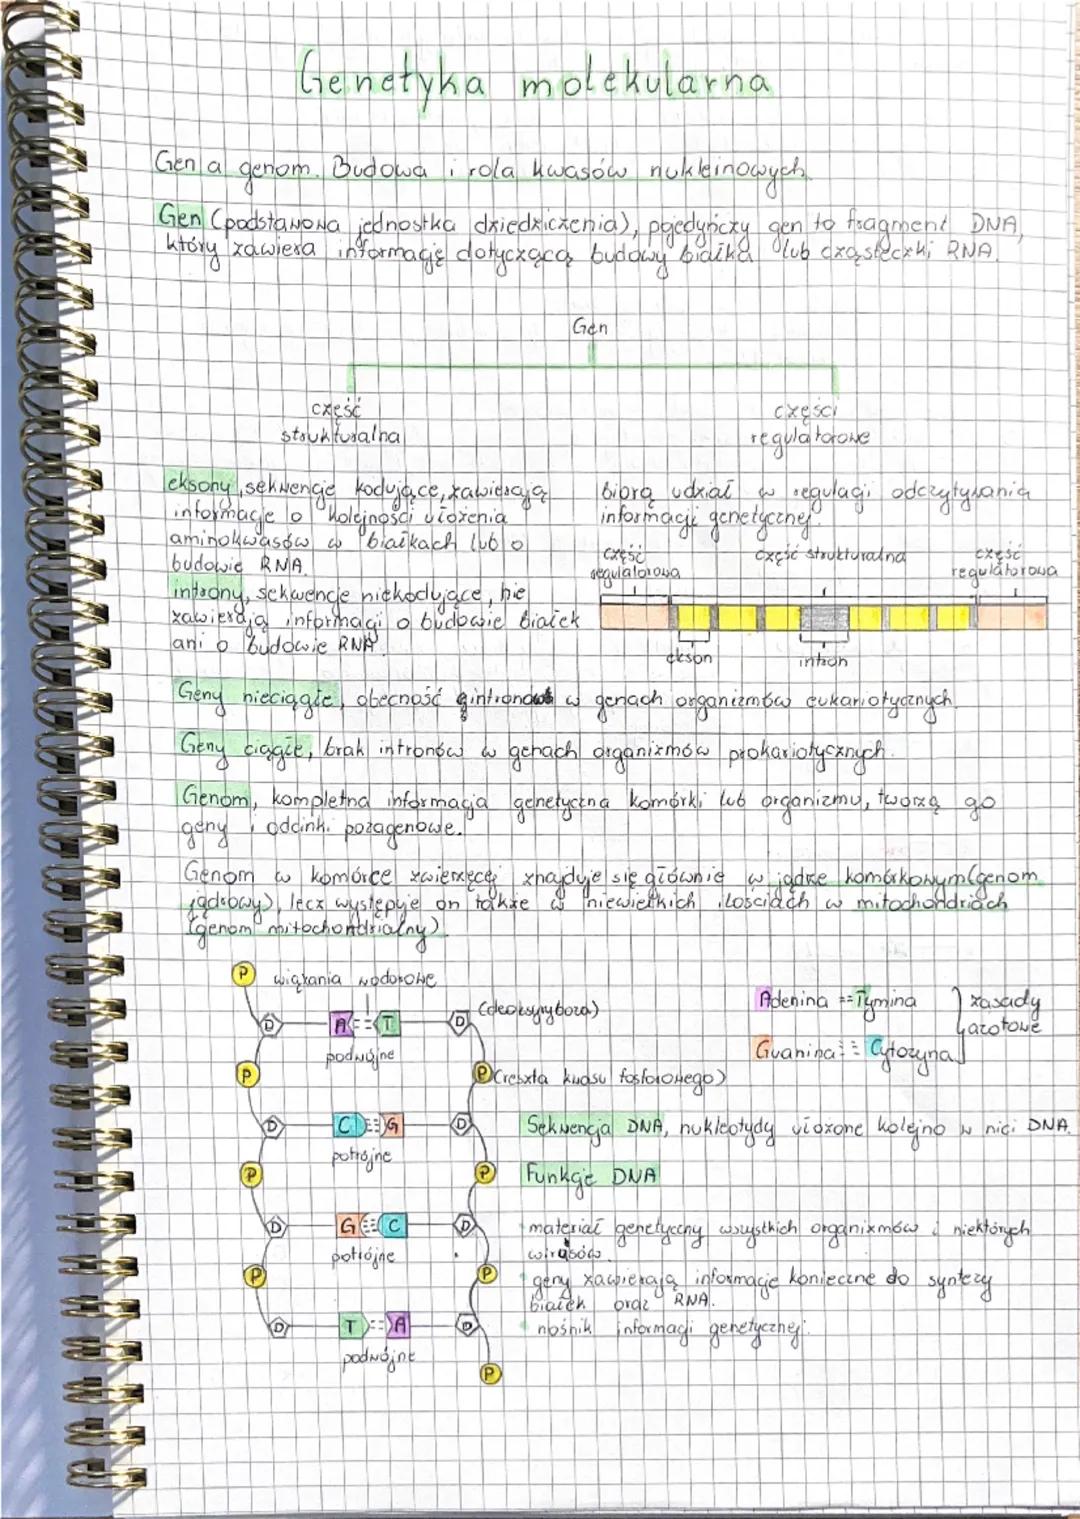 Genetyka molekularna
Gen a genom. Budowa i rola kwasów nukleinowych.
Gen (podstawowa jednostka dziedziczenia), pojedynczy gen to fragment DNA,
który zawiera informację dotyczącą budowy białka lub cząsteczki RNA.
Gen
część
strukturalna
części
regulatorowe
eksony, sekwencje kodujące, zawierają
informacje o kolejności ułożenia
aminokwasów w białkach lub o
budowie RNA.
introny, sekwencje niekodujące, nie
zawierają informacji o budowie białek
ani o budowie RNA.
biorą udział w regulacji odczytywania
informacji genetycznej.
część
regulatorowa
część strukturalna
część
regulatorowa
ekson
intron
Geny nieciągłe, obecność intronów w genach organizmów eukariotycznych.
Geny ciągłe, brak intronów w genach organizmów prokariotycznych.
Genom, kompletna informacja genetyczna komórki lub organizmu, tworzą go
geny i odcinki pozagenowe.
Genom w komórce zwierzęcej znajduje się głównie w jądrze komórkowym (genom
jądrowy), lecz występuje on także w niewielkich ilościach w mitochondriach
(genom mitochondrialny)
P
wiązania wodorowe
D A T D (deoksyryboza)
podwójne
P P (reszta kwasu fosforowego)
D C G D
potrójne
P P
D G C D
potrójne
P P
D T A D
podwójne
P
Adenina == Tymina
Guanina ≡≡ Cytozyna
zasady
azotowe
Sekwencja DNA, nukleotydy ułożone kolejno w nici DNA.
Funkcje DNA
• materiał genetyczny wszystkich organizmów i niektórych
wirusów.
• geny zawierają informacje konieczne do syntezy
białek oraz RNA.
• nośnik informacji genetycznej.